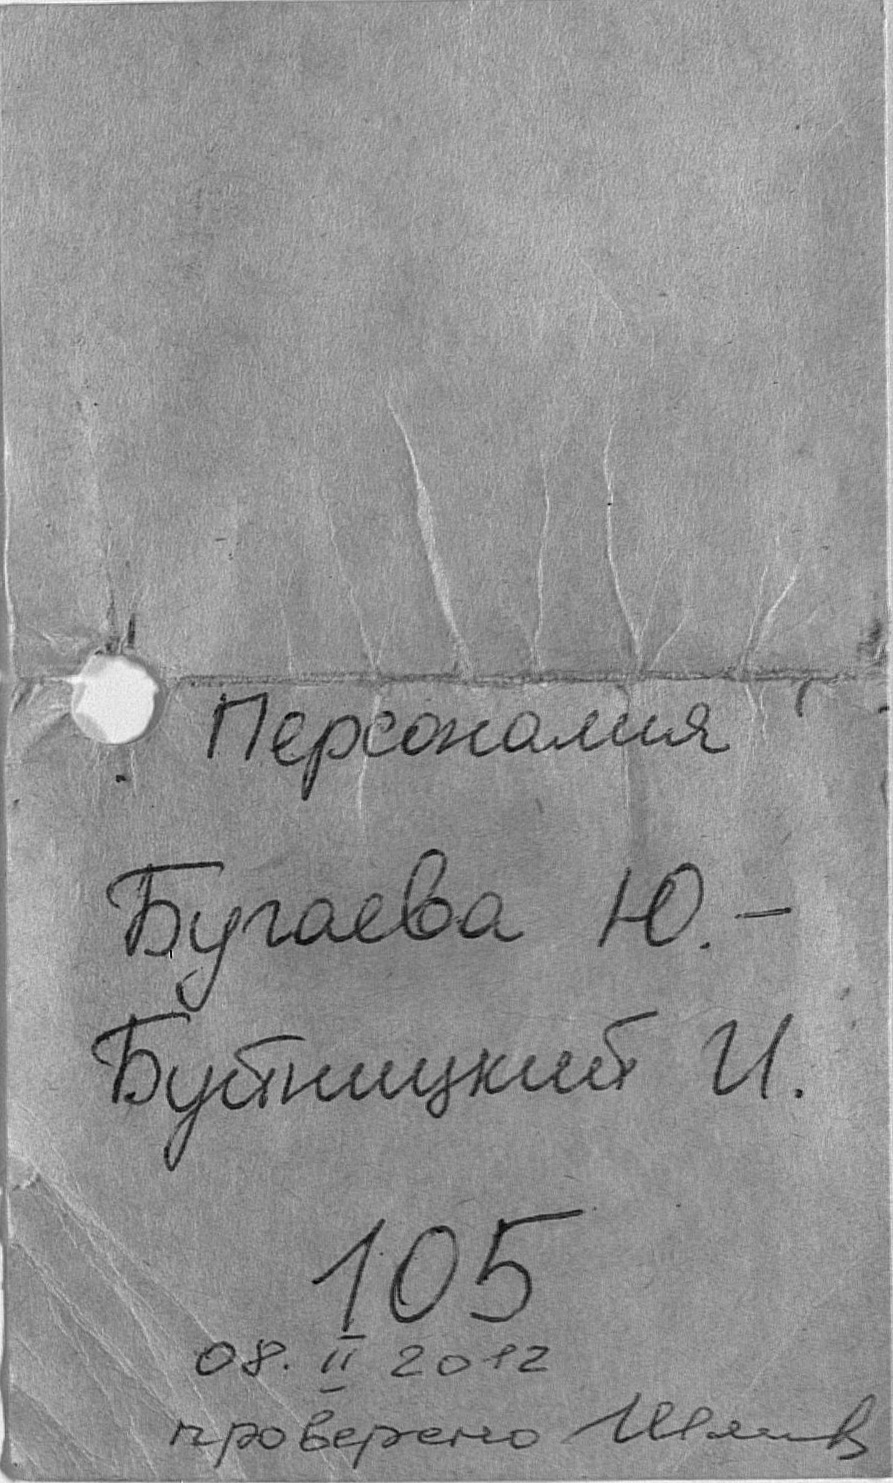 Персоналия
Бугаева Ю. –
Бутницкий И.
105
08. II 2012
проверено